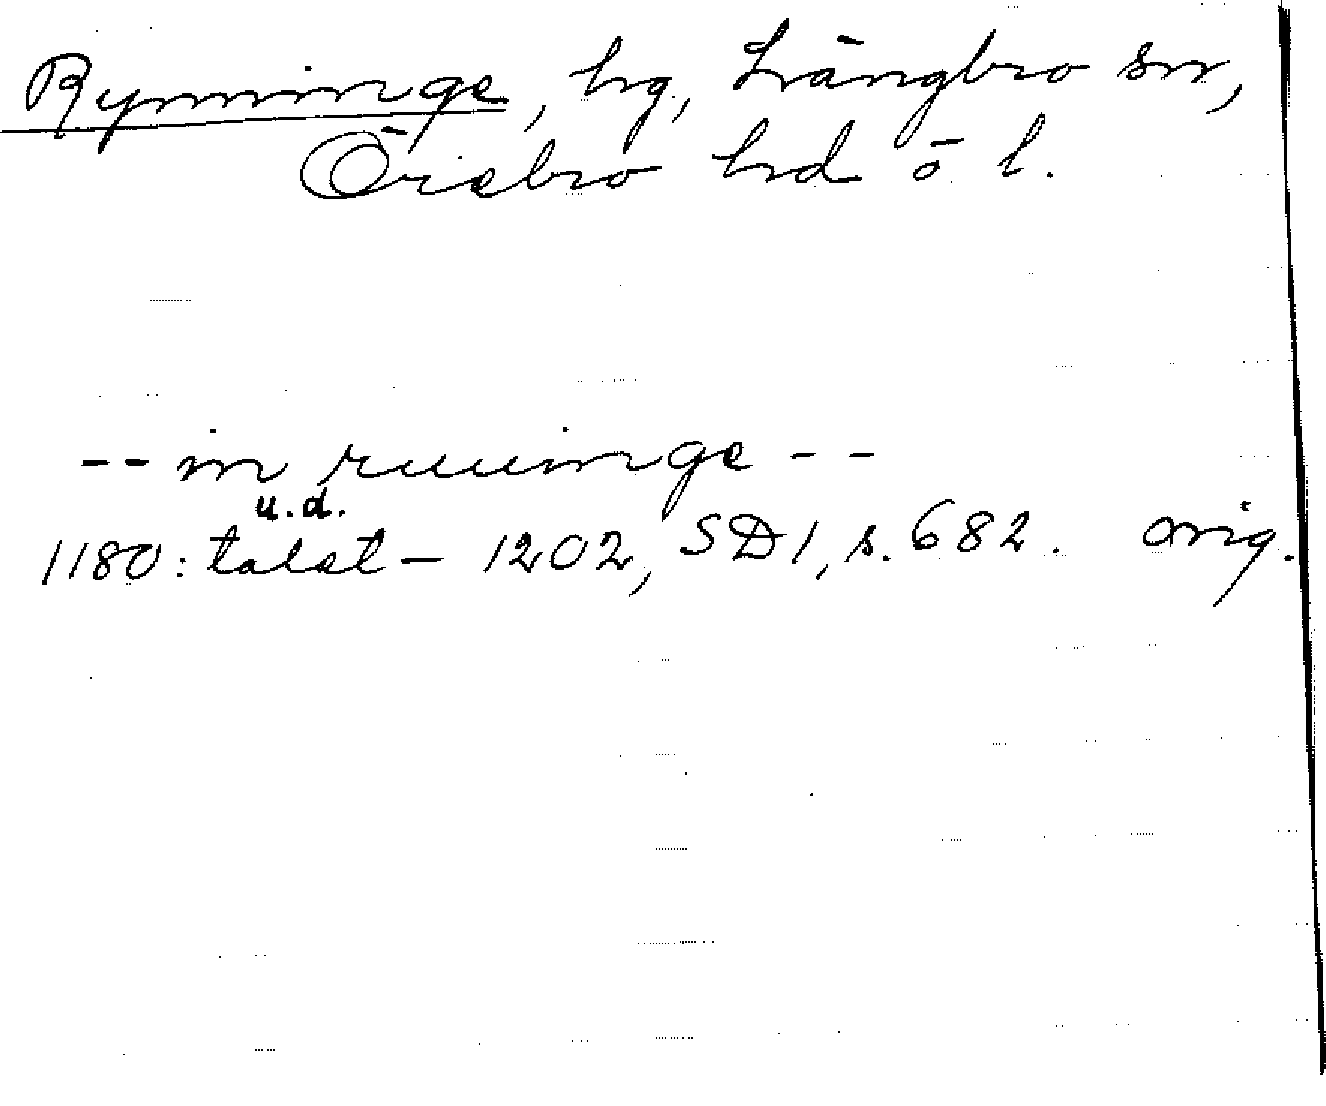 Rynninge, hg, Längbro sn,
Örebro hd o l.
-- in ruuinge --
u.d.
1180: talet - 1202, SD1, s. 682. orig.